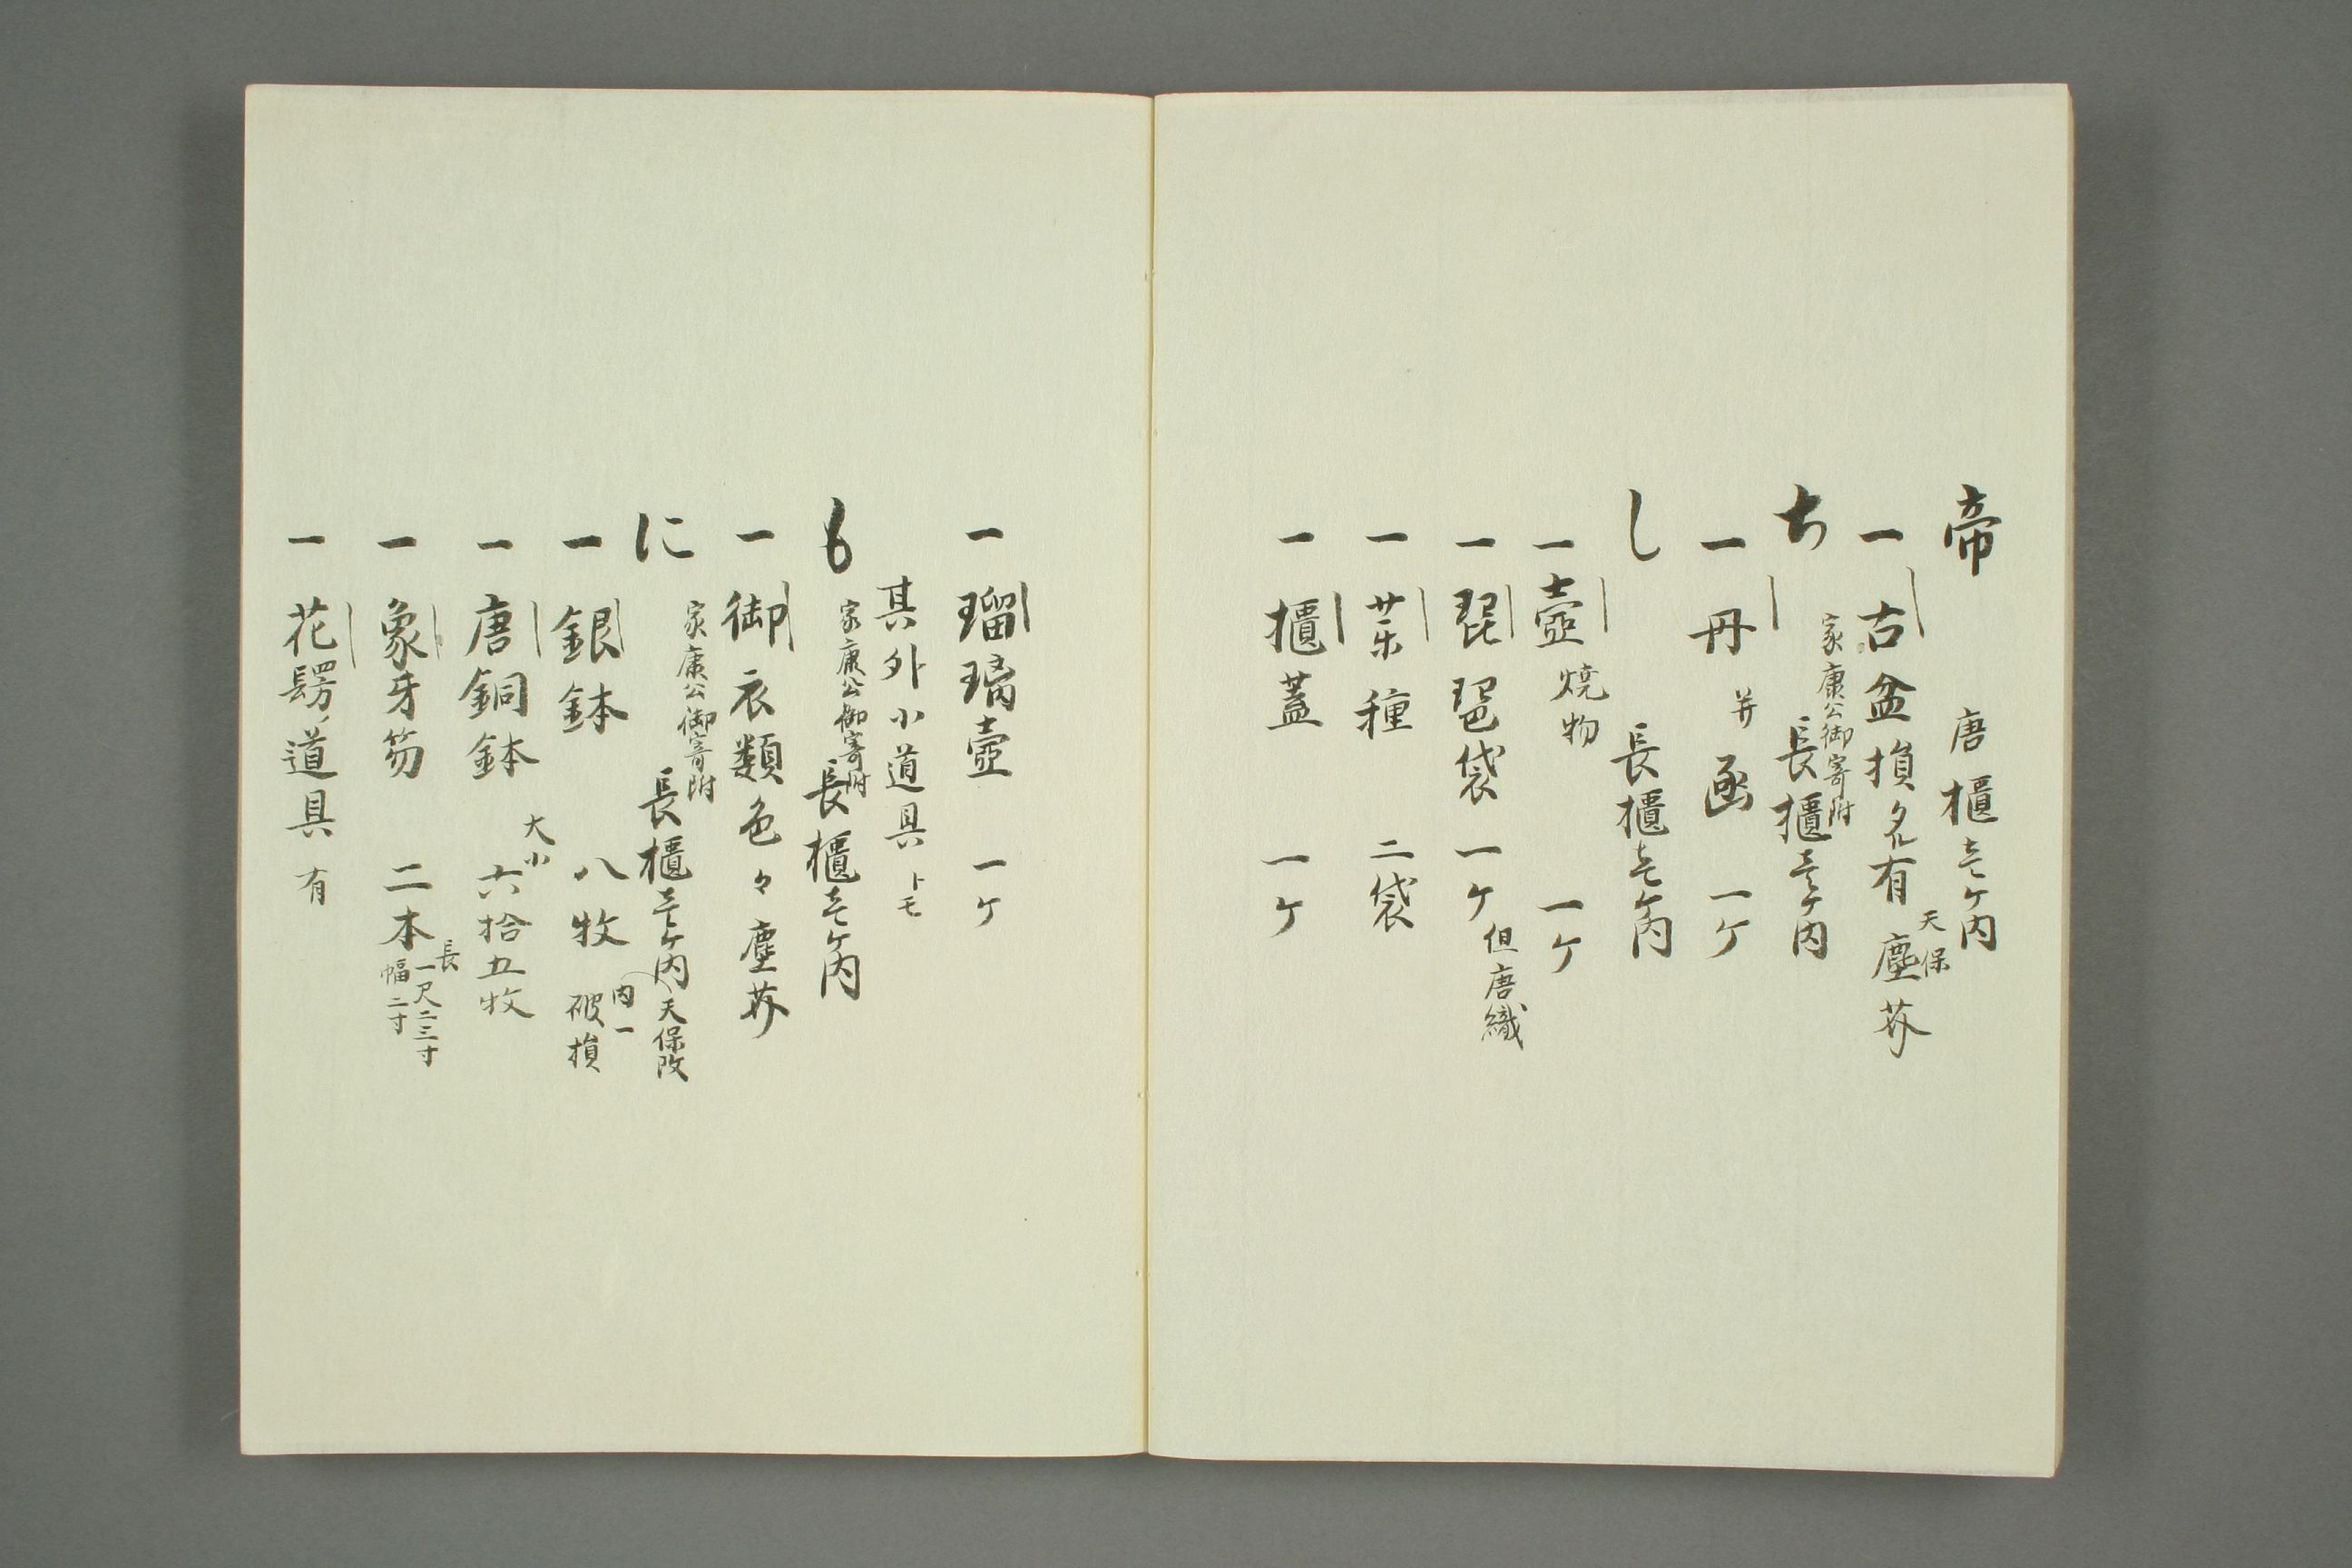 帝　唐櫃壱ケ内
一古盆損多有　塵芥
天保
ち　長櫃壱ケ内
家康公御寄附
一丹　并　函　一ケ
し　長櫃壱ケ内
一壺　焼物　一ケ
一琵琶袋　一ケ　但唐織
一薬種　二袋
一櫃蓋　一ケ
一瑠璃壺　一ケ
其外小道具　トモ
も　長櫃壱ケ内
家康公御寄附
一御衣類色々　塵芥
に　長櫃壱ケ内　天保改
家康公御寄附
一銀鉢　八枚　内一破損
一唐銅鉢　大小　六拾五枚
一象牙笏　二本　長一尺二三寸　幅二寸
一花鬘道具　有